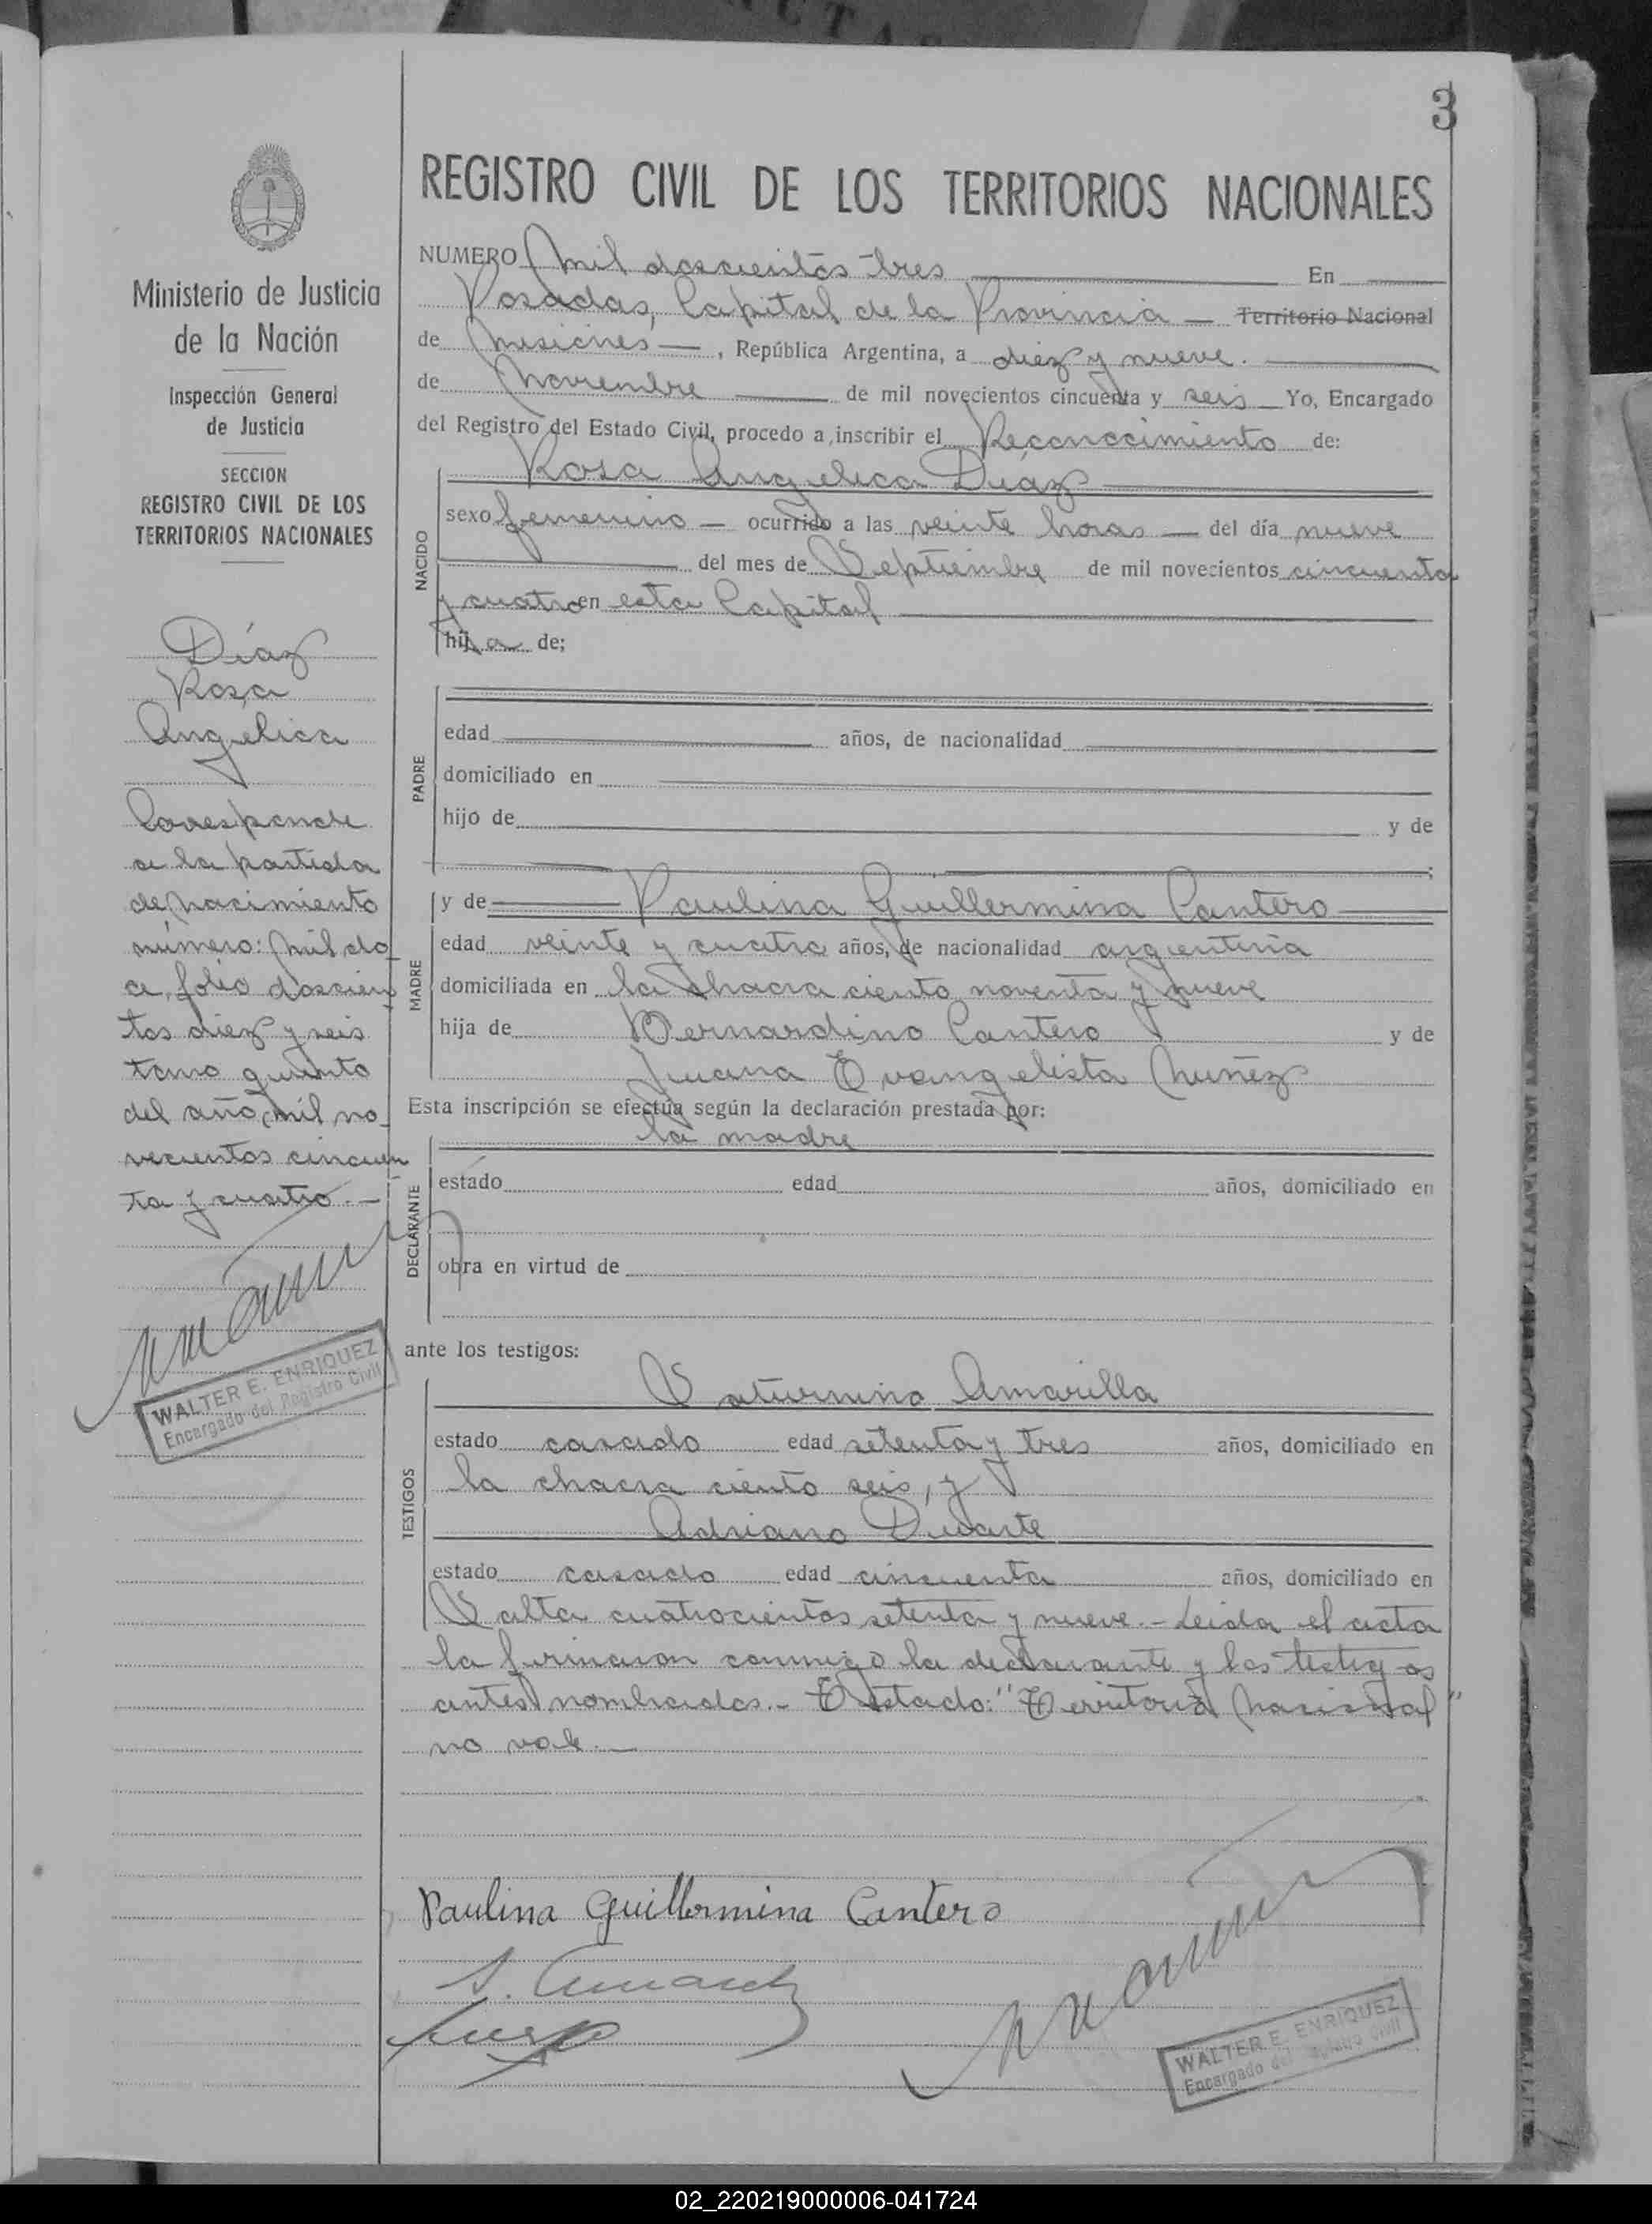 3
REGISTRO CIVIL DE LOS TERRITORIOS NACIONALES
Ministerio de Justicia
de la Nación
Inspección General
de Justicia
SECCION
REGISTRO CIVIL DE LOS
TERRITORIOS NACIONALES
Díaz
Rosa
Angélica
Corresponde
a la partida
de nacimiento
número: mil do
ce, folio doscien
tos diez y seis
tomo quinto
del año mil no
vecientos cincuen
ta y cuatro.-
WALTER E. ENRIQUEZ
Encargado del Registro Civil
NUMERO Mil doscientos tres En
Posadas, Capital de la Provincia - Territorio Nacional
de Misiones , República Argentina, a diez y nueve.
de Noviembre de mil novecientos cincuenta y seis Yo, Encargado
del Registro del Estado Civil, procedo a inscribir el Reconocimiento de:
NACIDO
Rosa Angelica Díaz
sexo femenino - ocurrido a las veinte horas - del día nueve
del mes de Septiembre de mil novecientos cincuenta
y cuatro en esta Capital
hija de;
PADRE
edad años, de nacionalidad
domiciliado en
hijo de y de
;
MADRE
y de Paulina Guillermina Cantero
edad veinte y cuatro años, de nacionalidad argentina
domiciliada en la chacra ciento noventa y nueve
hija de Bernardino Cantero y de
Juana Evangelista Nuñez
Esta inscripción se efectúa según la declaración prestada por:
DECLARANTE
la madre
estado edad años, domiciliado en
obra en virtud de
ante los testigos:
TESTIGOS
Saturnino Amarilla
estado casado edad setenta y tres años, domiciliado en
la chacra ciento seis, y
Adriano Duarte
estado casado edad cincuenta años, domiciliado en
Salta cuatrocientos setenta y nueve.- Leida el acta
la firmaron conmigo la declarante y los testigos
antes nombrados.- Testado: "Territorio Nacional"
no vale.-
Paulina Guillermina Cantero
WALTER E. ENRIQUEZ
Encargado del Registro Civil
02_220219000006-041724